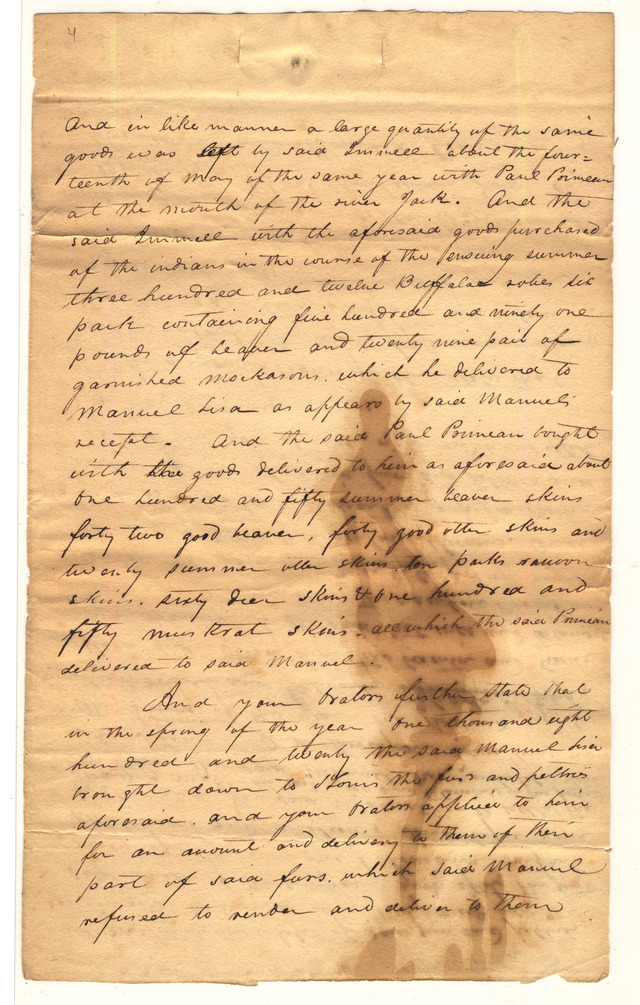 4
And in like manner a large quantity of the same
goods was left by said Immell about the four=
teenth of May of the same year with Paul Primeau
at the mouth of the river Jack. And the
said Immell with the aforesaid goods purchased
of the indians in the course of the ensuing summer
three hundred and twelve Buffaloe robes six
pack containing five hundred and ninety one
pounds of beaver and twenty nine pair of
garnished mockasons. which he delivered to
Manuel Lisa as appears by said Manuels
receipt. And the said Paul Primeau bought
with the goods delivered to him as aforesaid about
One hundred and fifty summer beaver skins
forty two good beaver, forty good otter skins and
twenty summer otter skins. ten packs racoon
skins. sixty deer skins & one hundred and
fifty muskrat skins. all which the said Primeau
delivered to said Manuel.
And your Orators further state that
in the spring of the year One thousand eight
hundred and twenty the said Manuel Lisa
brought down to St Louis the furs and peltries
aforesaid. and your Orators applied to him
for an amount and delivery to them of their
part of said furs. which said Manuel
refused to render and deliver to them